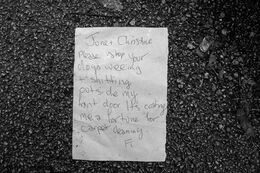 June + Christine
Please stop your
dogs weeing
+ shitting
outside my
front door It's costing
me a fortune for
carpet cleaning